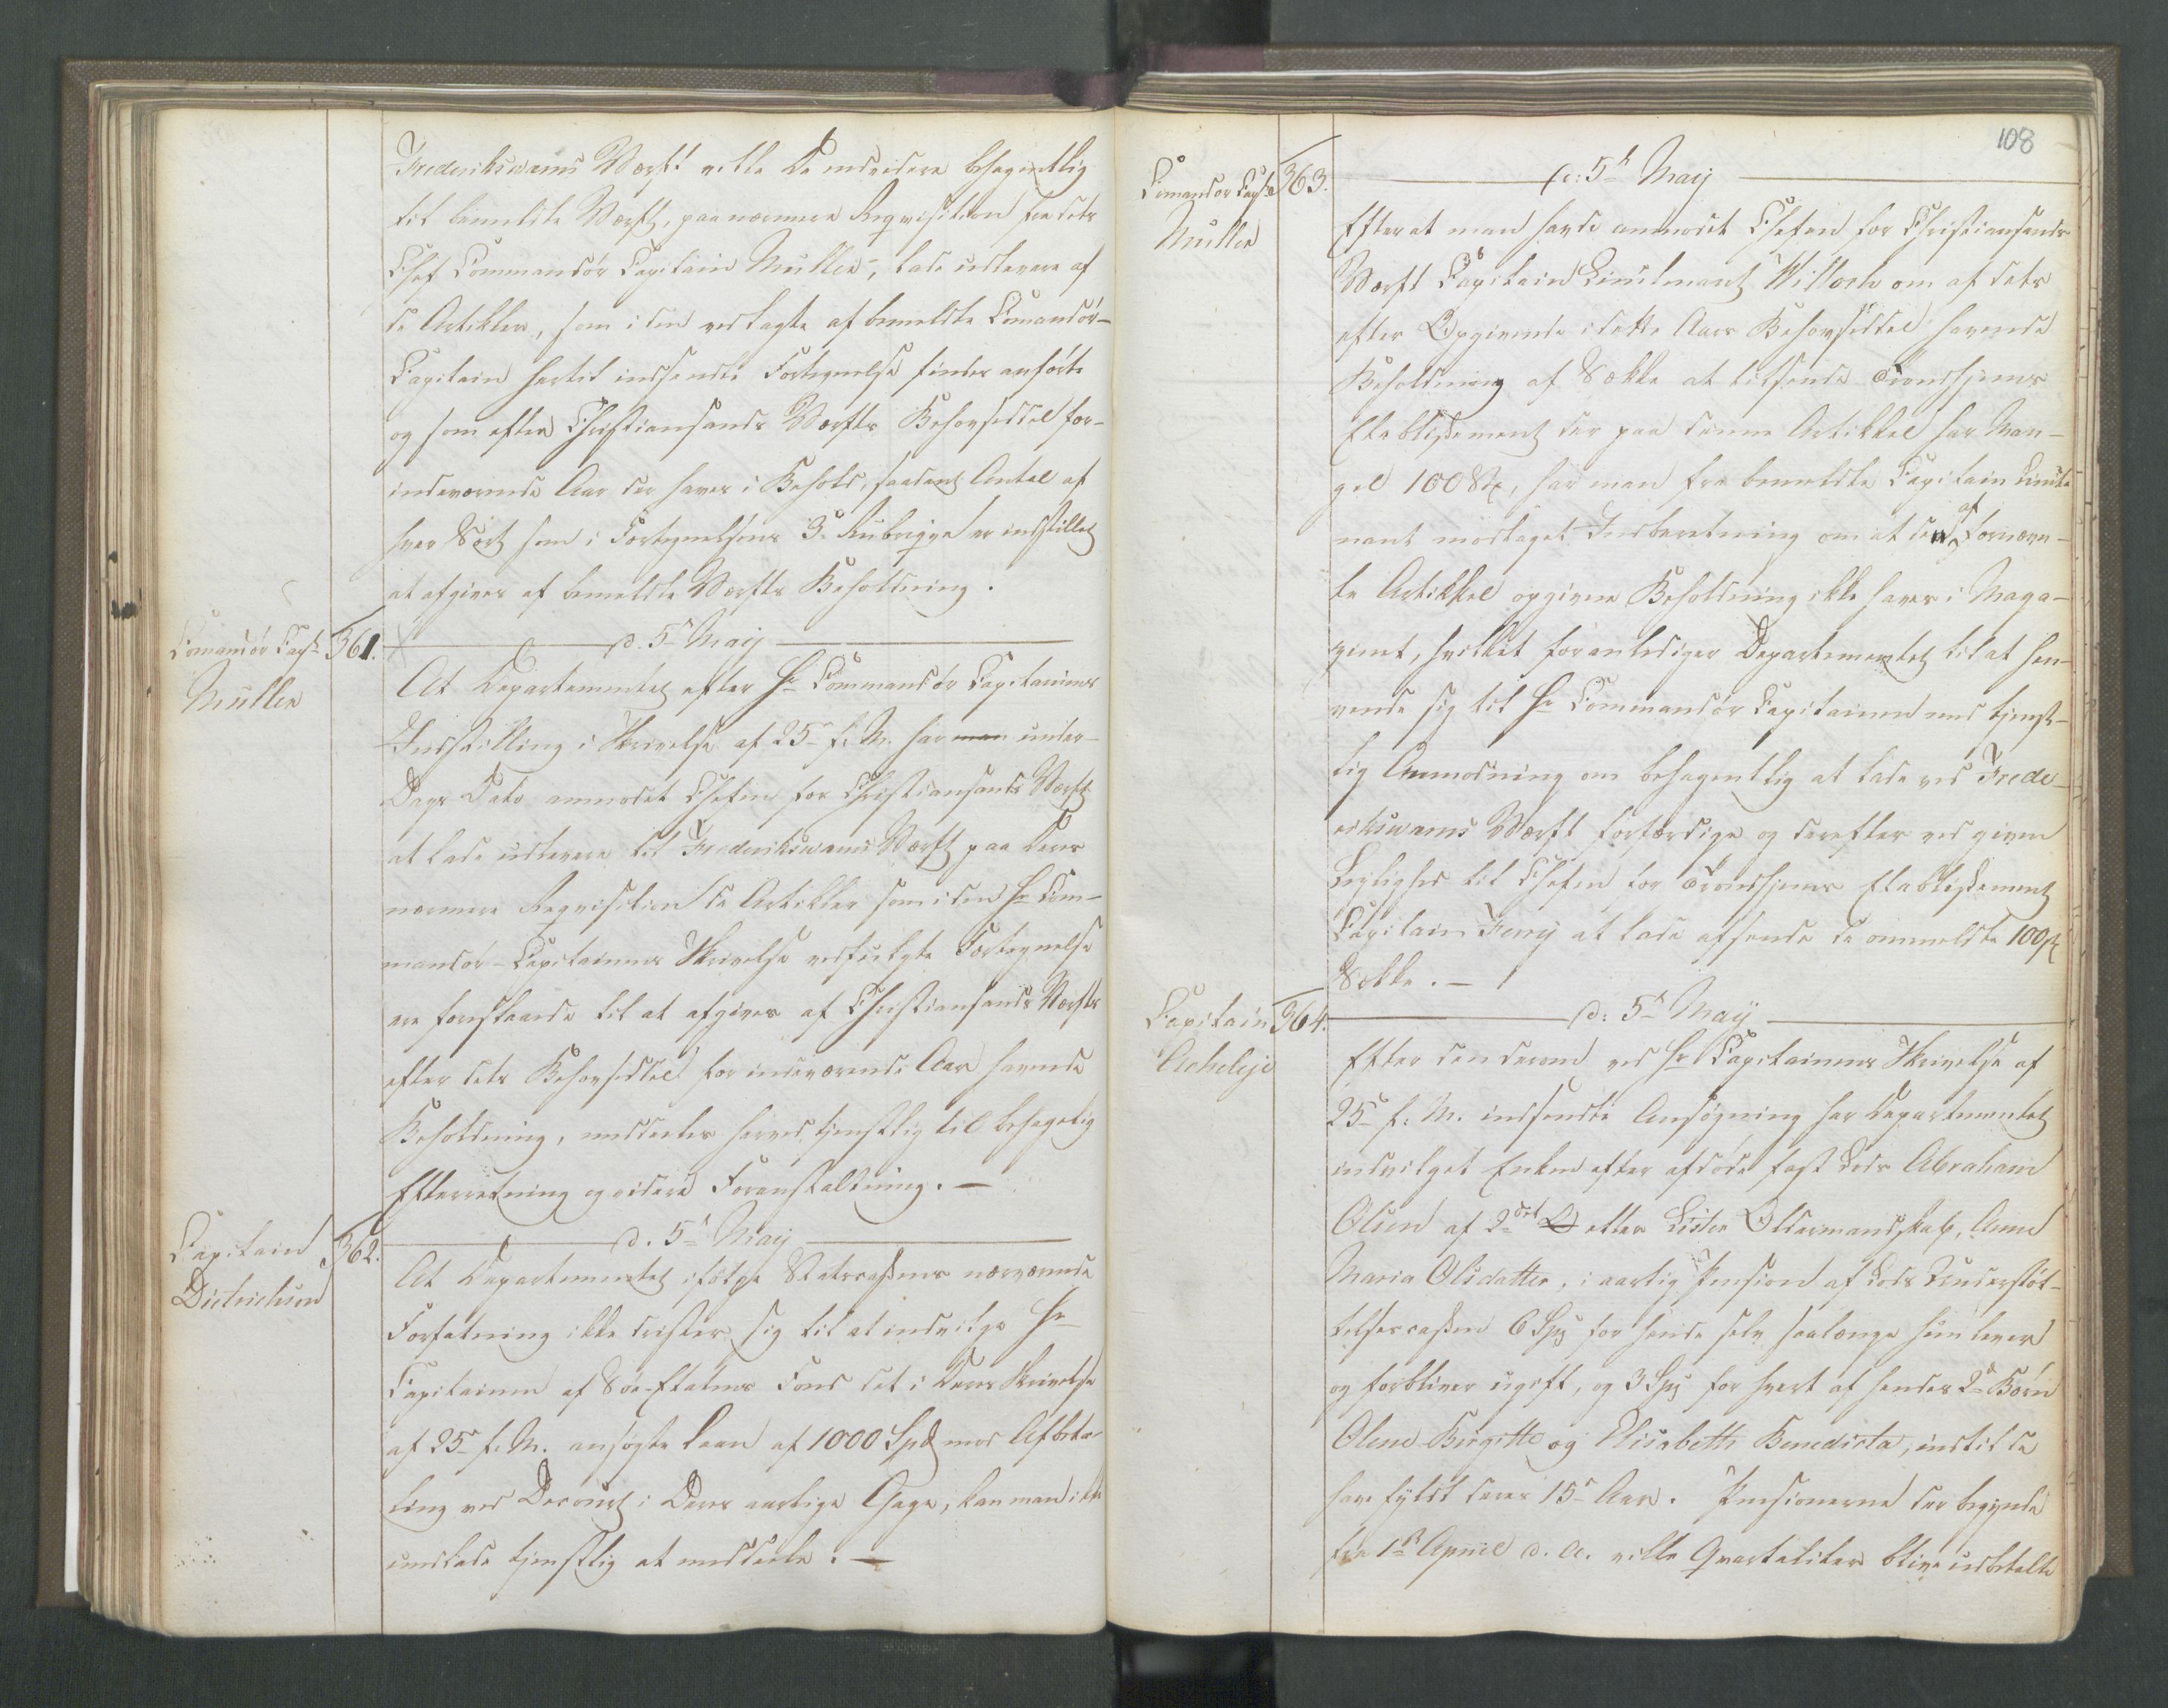 Frederiksværns Værft ville De endvidere behagentlig
til bemeldte Værft, paa nærmere Reqvisition fra dets
Chef Commandör Capitain Müller, lade udlevere af
de Artikler, som i den vedlagte af bemeldte Comandör-
Capitain hertil indsendte Fortegnelse findes anförte
og som efter Christiansands Værfts Behovseddel for
indeværende Aar der haves i Behold, saadant Antal af
hver Sort som i Fortegnelsens 3de Rubriqve er indstillet
at afgives af bemeldte Værfts Beholdning.
Comandör Capt. Müller
361. d. 5te Maij
At Departementet efter Hr Commandör Capitainens
Indstilling i Skrivelse af 25de f. M. har under
Dags Dato anmodet Chefen for Christiansands Værft
at lade udlevere til Frederiksværns Værft paa Deres
nærmere Reqvisition de Artikler som i den Hr Com-
mandör-Capitainens Skrivelse vedfulgte Fortegnelse
ere foreslaaede til at afgives af Christiansands Værfts
efter dets Behovseddel for indeværende Aar havende
Beholdning, meddeeles herved tjenstlig til behagelig
Efterretning og videre Foranstaltning. —
Capitain Dietrichson
362. d. 5te Maij
At Departementet ifölge Statscassens nærværende
Forfatning ikke drister sig til at indvilge Hr
Capitainen af Söe-Etatens Fond det i Deres Skrivelse
af 25de f. M. ansögte Laan af 1000 Spd mod Afbeta-
ling ved Decourt i Deres aarlige Gage, kan man ikke
undlade tjenstlig at meddeele. —
108
Comandör Capt. Müller
363. d: 5te Maij
Efter at man havde anmodet Chefen for Christiansands
Værft Capitain Lieutenant Willoch om af dets
efter Opgivende i dette Aars Behovseddel havende
Beholdning af Sække at tilsende Trondhjems
Etablissement der paa denne Artikkel har Man-
gel 100 Stk, har man fra bemeldte Capitain Lieute-
nant modtaget Indberetning om at den af fornævn-
te Artikkel opgivne Beholdning ikke haves i Maga-
zinet, hvilket foranlediger Departementet til at hen-
vende sig til Hr Commandör Capitainen med tjenst-
lig Anmodning om behagentlig at lade ved Frede-
riksværns Værft forfærdige og derefter ved given
Leilighed til Chefen for Trondhjems Etablissement
Capitain Ferry at lade afsende de ommeldte 100 st
Sække. —
Capitain Acheleje
364. d: 5te Maij
Efter den derom ved Hr Capitainens Skrivelse af
25de f. M. indsendte Ansögning har Departementet
indvilget Enken efter afdöde fast Lods Abraham
Olsen af 2det efter Lister Oldermandskab, Anne
Maria Olsdatter, i aarlig Pension af Lods Understöt-
telsescassen 6 Spd for hende selv saalænge hun lever
og forbliver ugift, og 3 Spd for hvert af hendes 2de Börn
Olene Birgitte og Elisabeth Benedicta, indtil de
have fyldt deres 15de Aar. Pensionerne der begynde
fra 1ste April d. A. ville Qvartaliter blive udbetalte